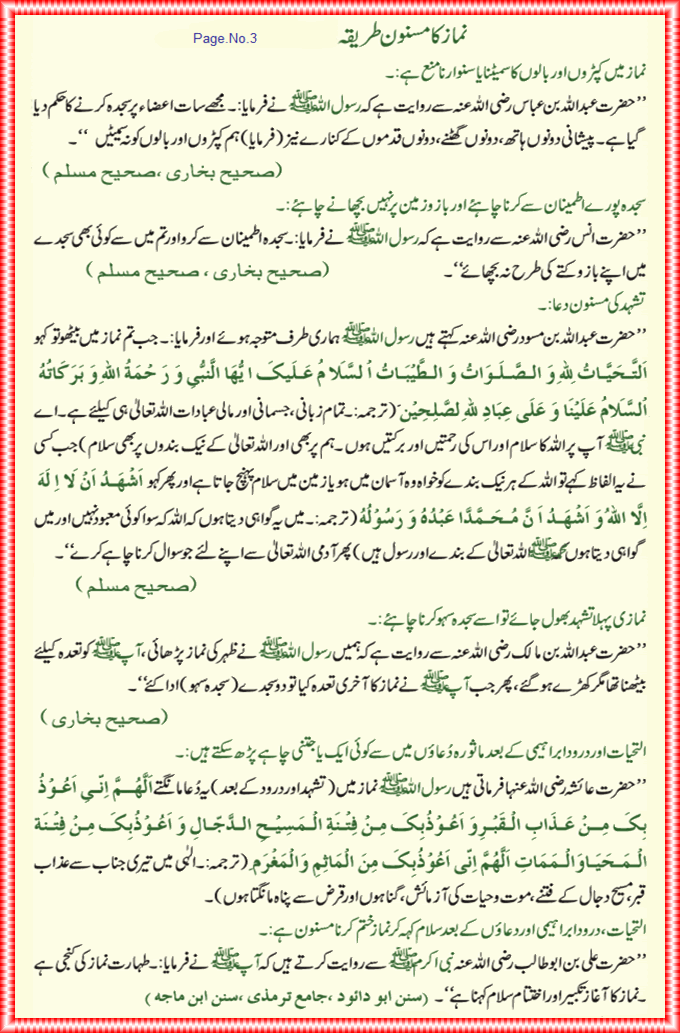 نماز کا مسنون طریقہ
Page.No.3
نماز میں کپڑوں اور بالوں کا سمیٹنا یا سنوارنا منع ہے:۔
’’حضرت عبداللہ بن عباس رضی اللہ عنہ سے روایت ہے کہ رسول اللہ ﷺ نے فرمایا:۔ مجھے سات اعضاء پر سجدہ کرنے کا حکم دیا
گیا ہے۔ پیشانی دونوں ہاتھ، دونوں گھٹنے، دونوں قدموں کے کنارے نیز (فرمایا) ہم کپڑوں اور بالوں کو نہ سمیٹیں ‘‘۔
(صحیح بخاری ،صحیح مسلم )
سجدہ پورے اطمینان سے کرنا چاہئے اور بازو زمین پر نہیں بچھانے چاہئے:۔
’’حضرت انس رضی اللہ عنہ سے روایت ہے کہ رسول اللہ ﷺ نے فرمایا:۔ سجدہ اطمینان سے کرو اور تم میں سے کوئی بھی سجدے
میں اپنے بازو کتے کی طرح نہ بچھائے‘‘۔ (صحیح بخاری ، صحیح مسلم )
تشہد کی مسنون دعا:۔
’’حضرت عبداللہ بن مسود رضی اللہ عنہ کہتے ہیں رسول اللہ ﷺ ہماری طرف متوجہ ہوئے اور فرمایا:۔ جب تم نماز میں بیٹھو تو کہو
اَلتَّحِیَّاتُ لِلّٰہِ وَ الصَّلَوَاتُ وَ الطَّیِّبَاتُ اَلسَّلَامُ عَلَیکَ ایُّھَا النَّبِیُّ وَ رَحْمَۃُ اللہِ وَ بَرَکَاتُہُ
اَلسَّلَامُ عَلَیْنَا وَ عَلَی عِبَادِ للہِ لصَّلِحِیْنَ (ترجمہ:۔ تمام زبانی، جسمانی اور مالی عبادات اللہ تعالیٰ ہی کیلئے ہے۔ اے
نبی ﷺ آپ پر اللہ کا سلام اور اس کی رحمتیں اور برکتیں ہوں۔ ہم پر بھی اور اللہ تعالیٰ کے نیک بندوں پر بھی سلام) جب کسی
نے یہ الفاظ کہے تو اللہ کے ہر نیک بندے کو خواہ وہ آسمان میں ہو یا زمین میں سلام پہنچ جاتا ہے اور پھر کہو اَشْھَدُ اَنْ لَا اِ لَہَ
اِلَّا اللہُ وَ اَشْھَدُ اَ نَّ مُحَمَّدًا عَبْدُہُ وَ رَسُوْلُہُ (ترجمہ:۔ میں یہ گواہی دیتا ہوں کہ اللہ کہ سوا کوئی معبود نہیں اور میں
گواہی دیتا ہوں محمد ﷺ اللہ تعالیٰ کے بندے اور رسول ہیں) پھر آدمی اللہ تعالیٰ سے اپنے لئے جو سوال کرنا چاہے کرے‘‘۔
(صحیح مسلم )
نمازی پہلا تشہد بھول جائے تو اسے سجدہ سہو کرنا چاہئے:۔
’’حضرت عبداللہ بن مالک رضی اللہ عنہ سے روایت ہے کہ ہمیں رسول اللہ ﷺ نے ظہر کی نماز پڑھائی، آپ ﷺ کو تعدہ کیلئے
بیٹھنا تھا مگر کھڑے ہو گئے، پھر جب آپ ﷺ نے نماز کا آخری تعدہ کیا تو دو سجدے (سجدہ سہو) ادا کئے‘‘۔
(صحیح بخاری )
التحیات اور درود ابراہیمی کے بعد ماثورہ دُعاؤں میں سے کوئی ایک یا جتنی چاہے پڑھ سکتے ہیں:۔
’’حضرت عائشہ رضی اللہ عنہا فرماتی ہیں رسول اللہ ﷺ نماز میں (تشہد اور درود کے بعد) یہ دُعا مانگتے اَللَّھُمَّ اِنّی اَعُوْذُ
بِکَ مِنْ عَذَابِ الْقَبْرِ وَ اَعُوْذُبِکَ مِنْ فِتْنَۃِ الْمَسِیْحِ الدَّجَّالِ وَ اَعُوْذُبِکَ مِنْ فِتْنَۃ
الْمَحْیَاوَالْمَمَاتِ اَللَّھُمَّ اِنّی اَعُوْذُبِکَ مِنَ الْمَاثِمِ وَالْمَغْرَمِ (ترجمہ:۔ الٰہی میں تیری جناب سے عذاب
قبر، مسیح دجال کے فتنے، موت و حیات کی آزمائش، گناہوں اور قرض سے پناہ مانگتا ہوں)۔
التحیات، درود ابراہیمی اور دعاؤں کے بعد سلام کہہ کر نماز ختم کرنا مسنون ہے:۔
’’حضرت علی بن ابو طالب رضی اللہ عنہ نبی اکرم ﷺ سے روایت کرتے ہیں کہ آپ ﷺ نے فرمایا:۔ طہارت نماز کی کنجی ہے
۔ نماز کا آغاز تکبیر اور اختتام سلام کہنا ہے‘‘۔ (سنن ابو دائود ،جامع ترمذی ،سنن ابن ماجہ )